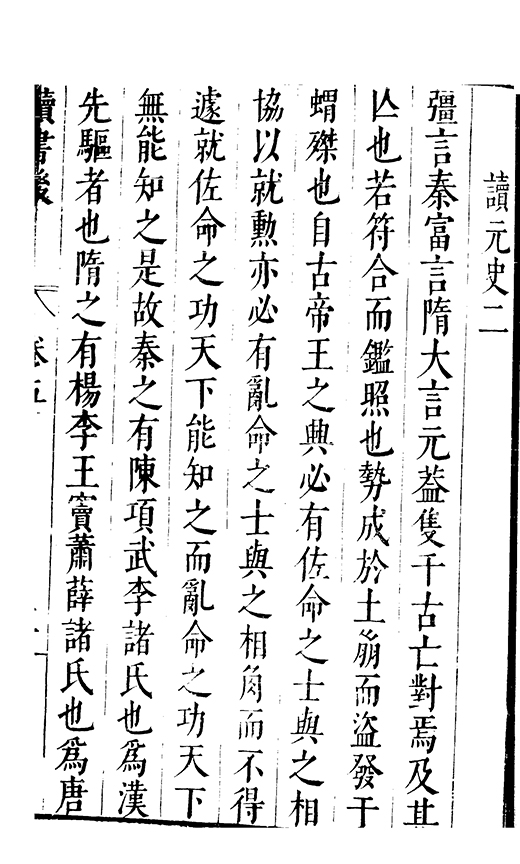 讀元史二
彊言秦富言隋大言元蓋隻千古亡對焉及其
亾也若符合而鑑照也勢成於土崩而盜發于
蝟殩也自古帝王之興必有佐命之士與之相
協以就勳亦必有亂命之士與之相角而不得
遽就佐命之功天下能知之而亂命之功天下
無能知之是故秦之有陳項武李諸氏也爲漢
先驅者也隋之有楊李王竇蕭薛諸氏也爲唐
讀書後
卷五